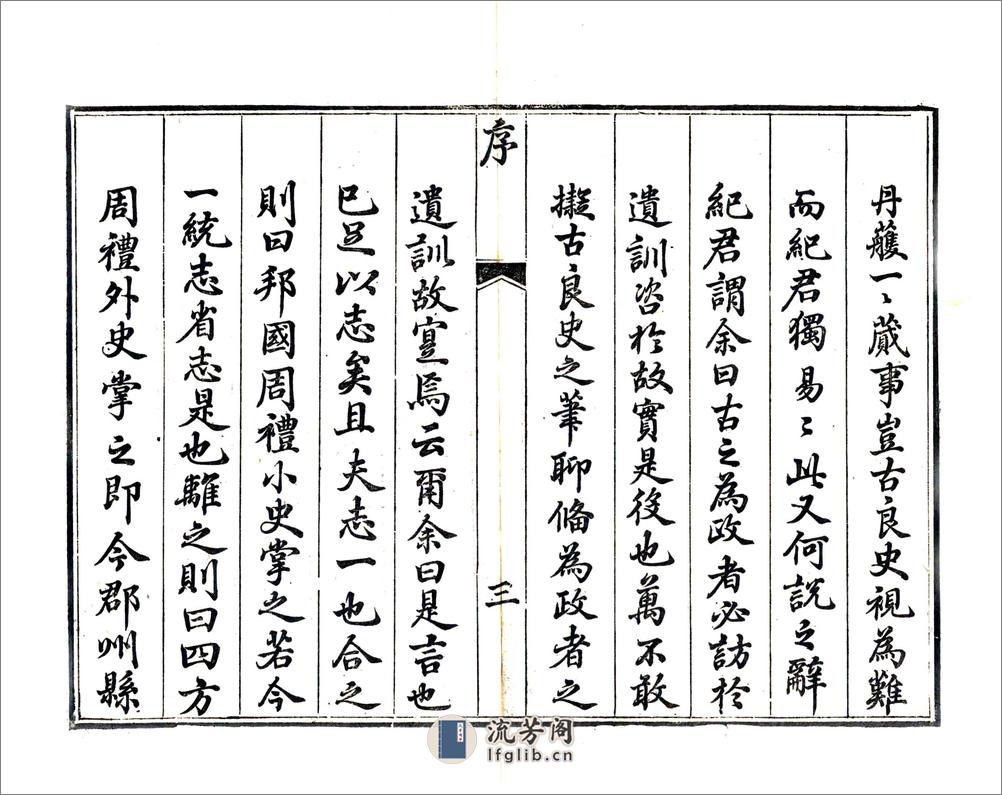 丹雘一〻蕆事豈古良史視為難
而紀君獨易〻此又何說之辭
紀君謂余曰古之為政者必訪於
遺訓咨於故實是役也萬不敢
擬古良史之筆聊俻為政者之
序
三
遺訓故寔焉云爾余曰是言也
已足以志矣且夫志一也合之
則曰邦國周禮小史掌之若今
一統志省志是也離之則曰四方
周禮外史掌之即今郡州縣
流芳阁
lfglib.cn